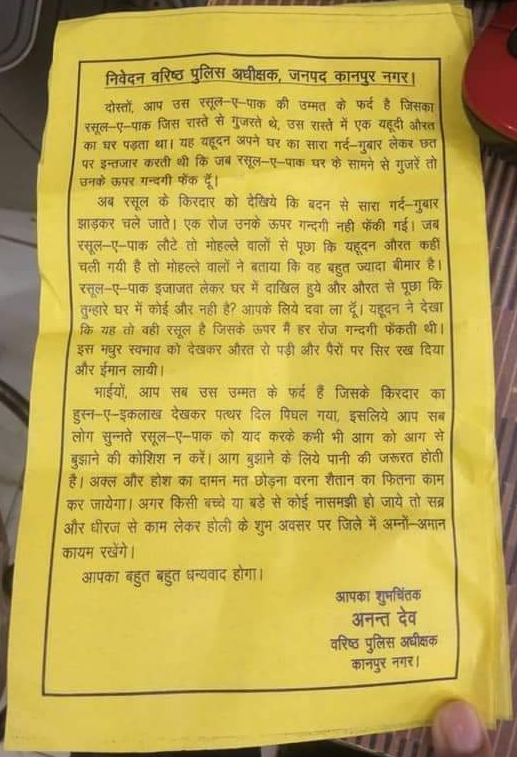 निवेदन वरिष्ठ पुलिस अधीक्षक, जनपद कानपुर नगर।
दोस्तों, आप उस रसूल-ए-पाक की उम्मत के फर्द है जिसका
रसूल-ए-पाक जिस रास्ते से गुजरते थे, उस रास्ते में एक यहूदी औरत
का घर पड़ता था। यह यहूदन अपने घर का सारा गर्द-गुबार लेकर छत
पर इन्तजार करती थी कि जब रसूल-ए-पाक घर के सामने से गुजरें तो
उनके ऊपर गन्दगी फेंक दूँ।
अब रसूल के किरदार को देखिये कि बदन से सारा गर्द-गुबार
झाड़कर चले जाते। एक रोज उनके ऊपर गन्दगी नही फेंकी गई। जब
रसूल-ए-पाक लौटे तो मोहल्ले वालों से पूछा कि यहूदन औरत कहीं
चली गयी है तो मोहल्ले वालों ने बताया कि वह बहुत ज्यादा बीमार है।
रसूल-ए-पाक इजाजत लेकर घर में दाखिल हुये और औरत से पूछा कि
तुम्हारे घर में कोई और नही है? आपके लिये दवा ला दूँ। यहूदन ने देखा
कि यह तो वही रसूल है जिसके ऊपर मैं हर रोज गन्दगी फेंकती थी।
इस मधुर स्वभाव को देखकर औरत रो पड़ी और पैरों पर सिर रख दिया
और ईमान लायी।
भाईयों, आप सब उस उम्मत के फर्द हैं जिसके किरदार का
हुस्न-ए-इकलाख देखकर पत्थर दिल पिघल गया, इसलिये आप सब
लोग सुन्नते रसूल-ए-पाक को याद करके कभी भी आग को आग से
बुझाने की कोशिश न करें। आग बुझाने के लिये पानी की जरूरत होती
है। अक्ल और होश का दामन मत छोड़ना वरना शैतान का फितना काम
कर जायेगा। अगर किसी बच्चे या बड़े से कोई नासमझी हो जाये तो सब्र
और धीरज से काम लेकर होली के शुभ अवसर पर जिले में अम्नों-अमान
कायम रखेंगे।
आपका बहुत बहुत धन्यवाद होगा।
आपका शुभचिंतक
अनन्त देव
वरिष्ठ पुलिस अधीक्षक
कानपुर नगर।